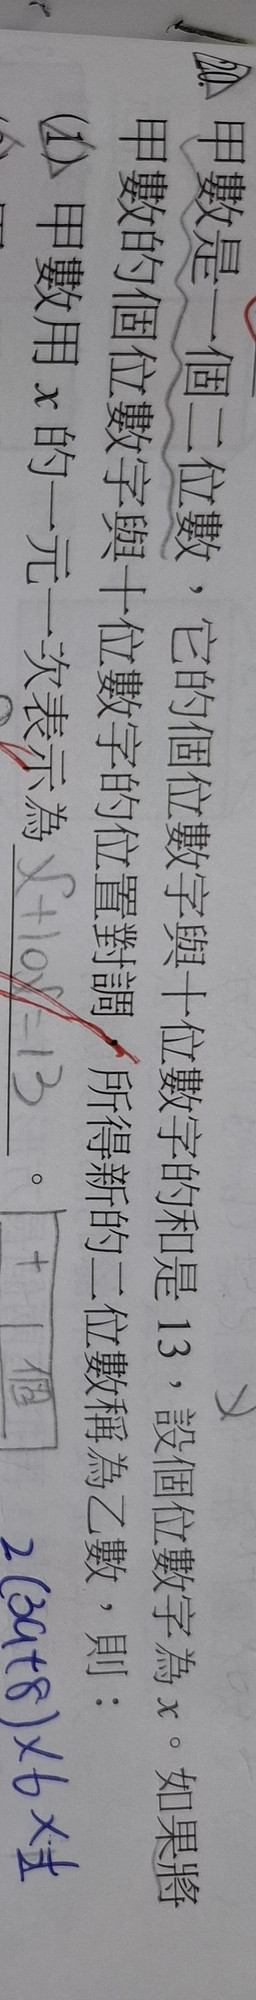 20. 甲數是一個二位數，它的個位數字與十位數字的和是 13，設個位數字為 x。如果將
甲數的個位數字與十位數字的位置對調，所得新的二位數稱為乙數，則：
(1) 甲數用 x 的一元一次表示為 x+10x=13 。
十 個
2(3a+8)×6×½